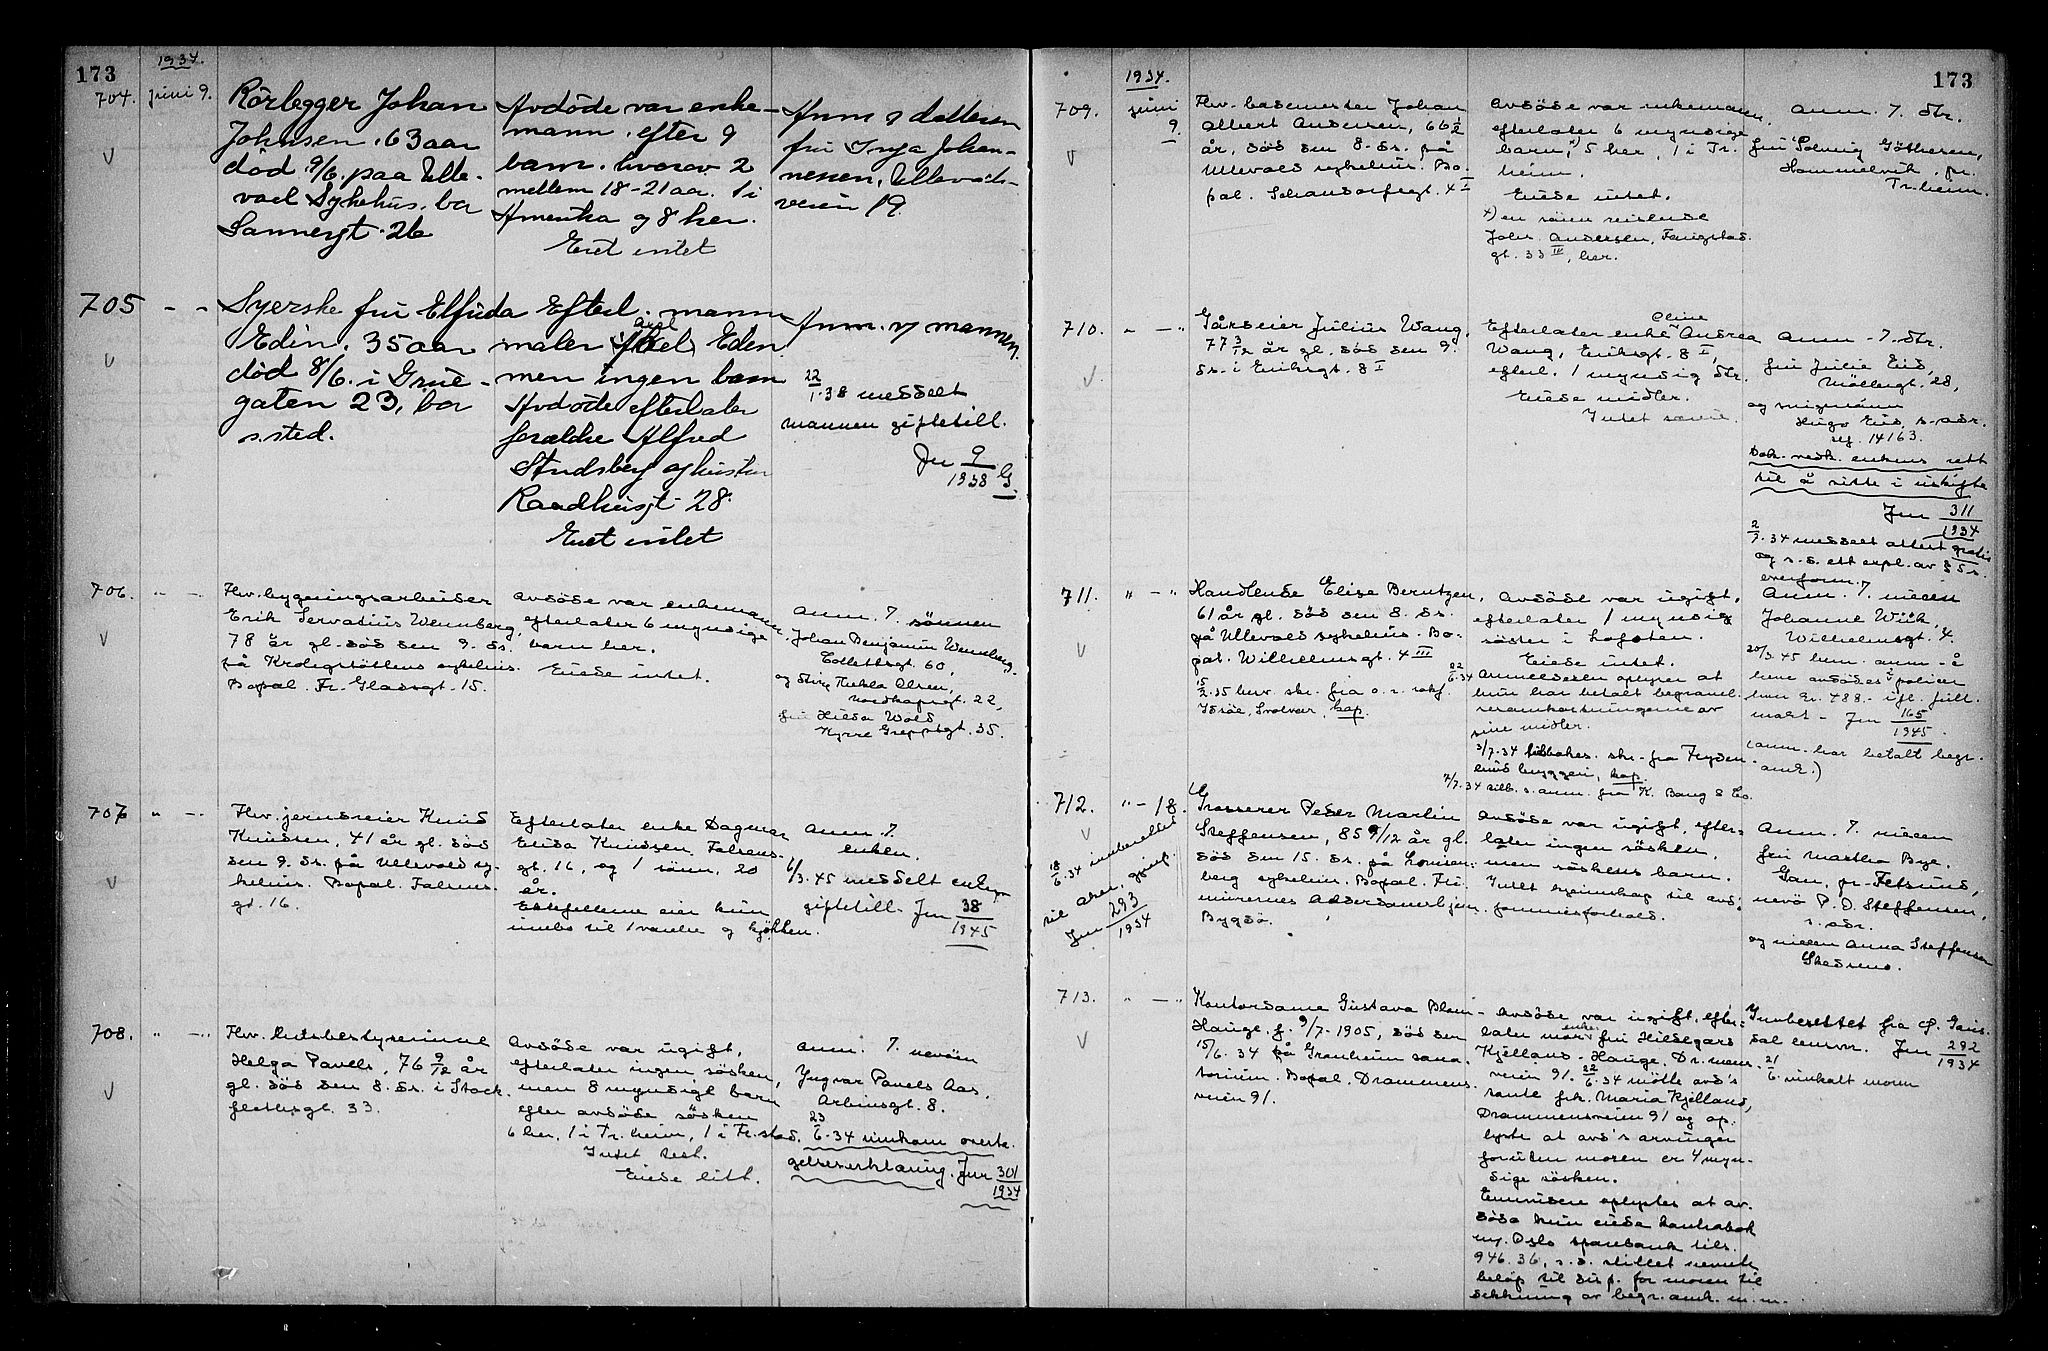 173
1934.
704. juni 9.
Rörlegger Johan
Johnsen, 63 aar
död 9/6. paa Ulle-
vaal Sykehus. bor
Sannergt. 26
Avdöde var enke-
mann. efter 9
barn. hvorav 2
mellem 18-21 aar. 1 i
Amerika og 8 her.
Eiet intet
Anm. v datteren
fru Inga Johan-
nessen, Ullevåls-
veien 19.
705 - -
Syerske fru Elfrida
Edin. 35 aar
död 8/6. i Grüe-
gaten 23, bor
s.sted.
Efterl. mann
maler Axel Eden
men ingen barn
Avdöde efterlater
forældre Alfred
Strndsberg og hustru
Raadhusgt. 28.
Eiet intet
Anm. v mannen.
22/1.38 meddelt
mannen giftetill.
Jnr 9/1938 G.
706. " -
Fhv. bygningsarbeider
Erik Servatius Wennberg,
78 år gl. död den 9. ds.
på Krohgstöttens sykehus.
Bopæl. Fr. Gladsgt. 15.
Avdöde var enkemann,
efterlater 6 myndige
barn her.
Eiede intet.
Anm. 7. sönnen
Johan Benjamin Wennberg,
Collettsgt. 60,
og dtre Thekla Olsen,
Nordkapgt. 22,
fru Hilda Wold
Kyrre Greppsgt. 35.
707 " -
Fhv. jerndreier Knud
Knudsen, 41 år gl. död
den 9. ds. på Ullevold sy-
kehus. Bopæl. Falsens-
gt. 16.
Efterlater enke Dagmar
Enida Knudsen, Falsens-
gt. 16, og 1 sönn, 20
år.
Ektefellene eier kun
innbo til 1 værelse og kjökken.
Anm. 7.
enken.
6/3.45 meddelt enken
giftetill. Jnr 38/1945
708. " -
Fhv. husbestyrerinne
Helga Pavels, 76 9/12 år
gl. död den 8. ds. i Stock-
flethsgt. 33.
Avdöde var ugift,
efterlater ingen sösken,
men 8 myndige barn
efter avdöde sösken
6 her, 1 i Tr.heim, 1 i Fr.stad.
Intet test.
Eiede litt.
Anm. 7. nevöen
Yngvar Pavels Aas,
Arbinsgt. 8.
23/6.34 innkom overta-
gelseserklæring. Jnr 301/1934
173
1934.
709. juni 9.
Fhv. basemester Johan
Albert Andersen, 66 1/2
år, död den 8. ds. på
Ullevold sykehus. Bo-
pæl. Schandorfsgt. 4 I
Avdöde var enkemann,
efterlater 6 myndige
barn, x) 5 her, 1 i Tr.
heim.
Eiede intet.
x) en sönn reisende
Johs. Andersen, Fougstad-
gt. 33 III, her.
Anm. 7. dtr.
fru Solveig Göthesen,
Hommelvik, pr.
Tr.heim.
710. " - "
Gårdeier Julius Wang,
77 3/12 år gl. död den 9.
ds. i Eriksgt. 8 I
Efterlater enke Oline Andrea
Wang, Eriksgt. 8 I,
efterl. 1 myndig dtr.
Eiede midler.
Intet særeie
Anm. 7. dtr.
fru Julie Eid,
Möllergt. 28,
og svigersönn
Hugo Eid, s. adr.
tlf. 14163.
Dok. vedk. enkens rett
til å sitte i uskifte
Jnr 311/1934
2/7.34 meddelt attest gratis
og s.d. ett expl. av § 5 s.
overform.
711. " - "
Handlende Elise Berntzen,
61 år gl. död den 8. ds.
på Ullevold sykehus. Bo-
pæl. Wilhelmsgt. 4 III
15/2.35 henv. skr. fra o.r. sakf.
Isdöl, Svolvær, kap.
Avdöde var ugift,
efterlater 1 myndig
söster i Lofoten.
Eiede intet.
22/6.34 Anmeldelsen oplyser at
hun har betalt begravel-
sesomkostningene av
sine midler.
3/7.34 tilbakes. skr. fra Fryden-
lunds bryggeri, kap.
7/7.34 tilb. s. anm. fra K. Bang & Co.
Anm. 7. niecen
Johanne Wiik,
Wilhelmsgt. 4.
20/3.45 hun. anm. å
heve avdödes polise
hun kr. 488.- ifl. full-
makt - Jnr 165/1945.
(anm. har betalt begr.
omk.)
712. " - 18.
18/6.34 innberettet
til skar, gjenp.
Jnr 293/1934
Grosserer Peder Martin
Steffensen, 85 9/12 år gl.
död den 15. ds. på Lovisen-
berg sykehus. Bopæl. Fri-
murernes Aldersdomshjem,
Bygdö.
Avdöde var ugift, efter-
later ingen sösken,
men söskens barn.
Intet kjennskap til avd.s
formuesforhold.
Anm. 7. niecen
fru Martha Bye,
Gan, pr. Fetsund,
nevö P. O. Steffensen,
s. adr.
og niecen Anna Steffensen
Skedsmo.
713. " - "
Kontordame Gustava Blom
Hauge, f. 9/7-1905, död den
15/6.34 på Granheim sana-
torium. Bopæl. Drammens-
veien 91.
Avdöde var ugift, efter-
later mor enke fru Hildegard
Kjelland-Hauge, Dr.mens-
veien 91. 22/6.34 mötte avd's
tante frk. Maria Kjelland,
Drammensveien 91 og op-
lyste at avd's arvinger
foruten moren er 4 myn-
dige sösken.
Ennvidere oplystes at av-
döde kun eiede bankabok
m. Oslo sparebank tils.
946.36, s.d. stillet nevnte
belöp til disp. for moren til
dekkning av begr. omk. m.m.
Innberettet fra of. Gaus-
dal lensm. Jnr 292/1934
21/6. innkalt moren